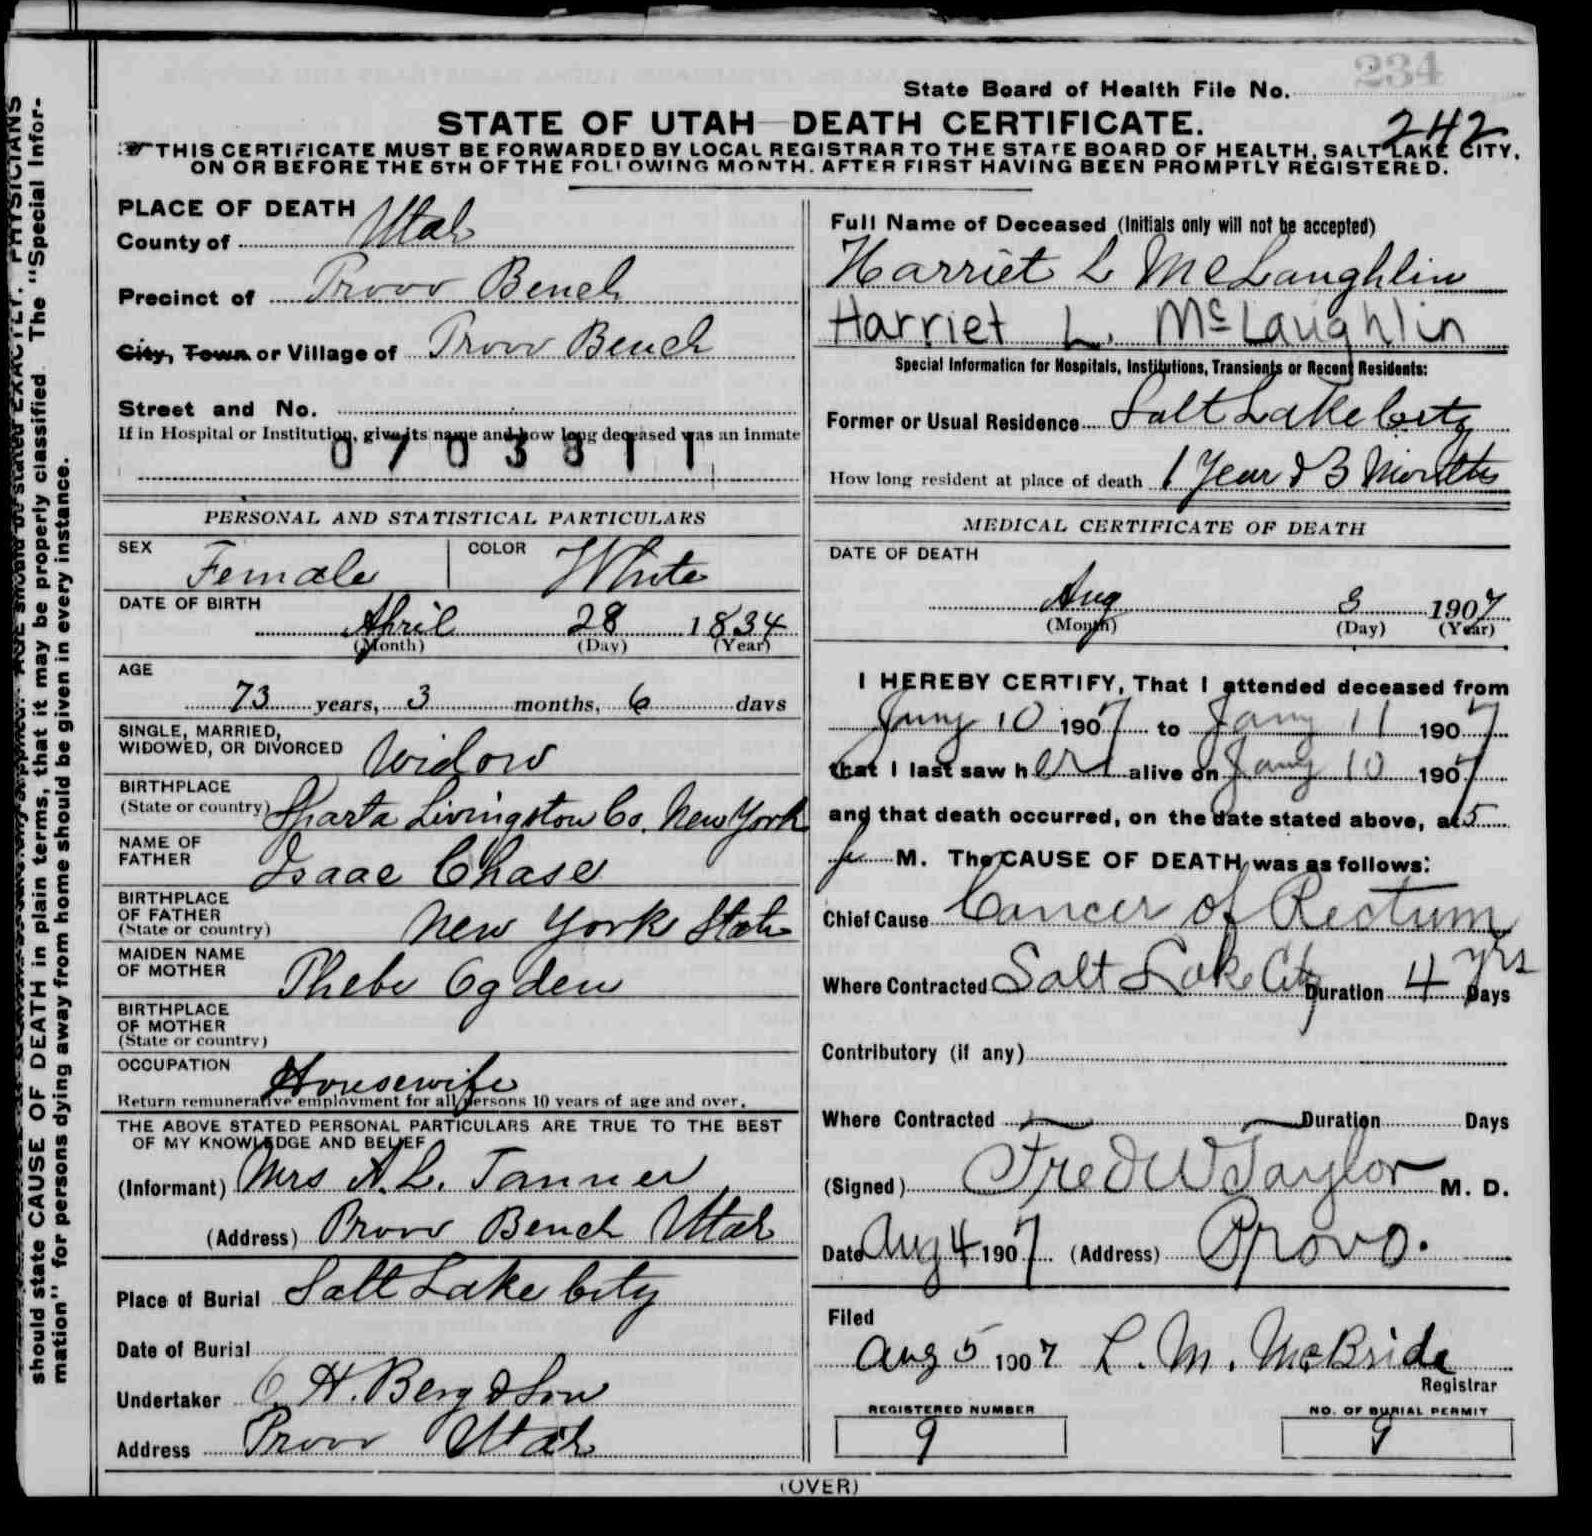 234
State Board of Health File No.
STATE OF UTAH—DEATH CERTIFICATE.
242
THIS CERTIFICATE MUST BE FORWARDED BY LOCAL REGISTRAR TO THE STATE BOARD OF HEALTH, SALT LAKE CITY,
ON OR BEFORE THE 5TH OF THE FOLLOWING MONTH, AFTER FIRST HAVING BEEN PROMPTLY REGISTERED.
PLACE OF DEATH
County of Utah
Precinct of Provo Bench
City, Town or Village of Provo Bench
Street and No.
If in Hospital or Institution, give its name and how long deceased was an inmate
PERSONAL AND STATISTICAL PARTICULARS
SEX Female COLOR White
DATE OF BIRTH
April 28 1834
(Month) (Day) (Year)
AGE
73 years, 3 months, 6 days
SINGLE, MARRIED,
WIDOWED, OR DIVORCED Widow
BIRTHPLACE
(State or country) Sparta Livingston Co. New York
NAME OF
FATHER Isaac Chase
BIRTHPLACE
OF FATHER
(State or country) New York State
MAIDEN NAME
OF MOTHER Phebe Ogden
BIRTHPLACE
OF MOTHER
(State or country)
OCCUPATION Housewife
Return remunerative employment for all persons 10 years of age and over.
THE ABOVE STATED PERSONAL PARTICULARS ARE TRUE TO THE BEST
OF MY KNOWLEDGE AND BELIEF
(Informant) Mrs A. L. Tanner
(Address) Provo Bench Utah
Place of Burial Salt Lake City
Date of Burial
Undertaker O. H. Berg & Son
Address Provo Utah
Full Name of Deceased (Initials only will not be accepted)
Harriet L McLaughlin
Harriet L. McLaughlin
Special Information for Hospitals, Institutions, Transients or Recent Residents:
Former or Usual Residence Salt Lake City
How long resident at place of death 1 Year & 3 Months
MEDICAL CERTIFICATE OF DEATH
DATE OF DEATH
Aug 3 1907
(Month) (Day) (Year)
I HEREBY CERTIFY, That I attended deceased from
Jany 10 1907 to Jany 11 1907
that I last saw her alive on Jany 10 1907
and that death occurred, on the date stated above, at 5
p M. The CAUSE OF DEATH was as follows:
Chief Cause Cancer of Rectum
Where Contracted Salt Lake City Duration 4 yrs Days
Contributory (if any)
Where Contracted Duration Days
(Signed) Fred W Taylor M. D.
Date Aug 4 1907 (Address) Provo.
Filed
Aug 5 1907 L. M. McBride
Registrar
REGISTERED NUMBER
9
NO. OF BURIAL PERMIT
9
(OVER)
should state CAUSE OF DEATH in plain terms, that it may be properly classified. The "Special Infor-
mation" for persons dying away from home should be given in every instance.